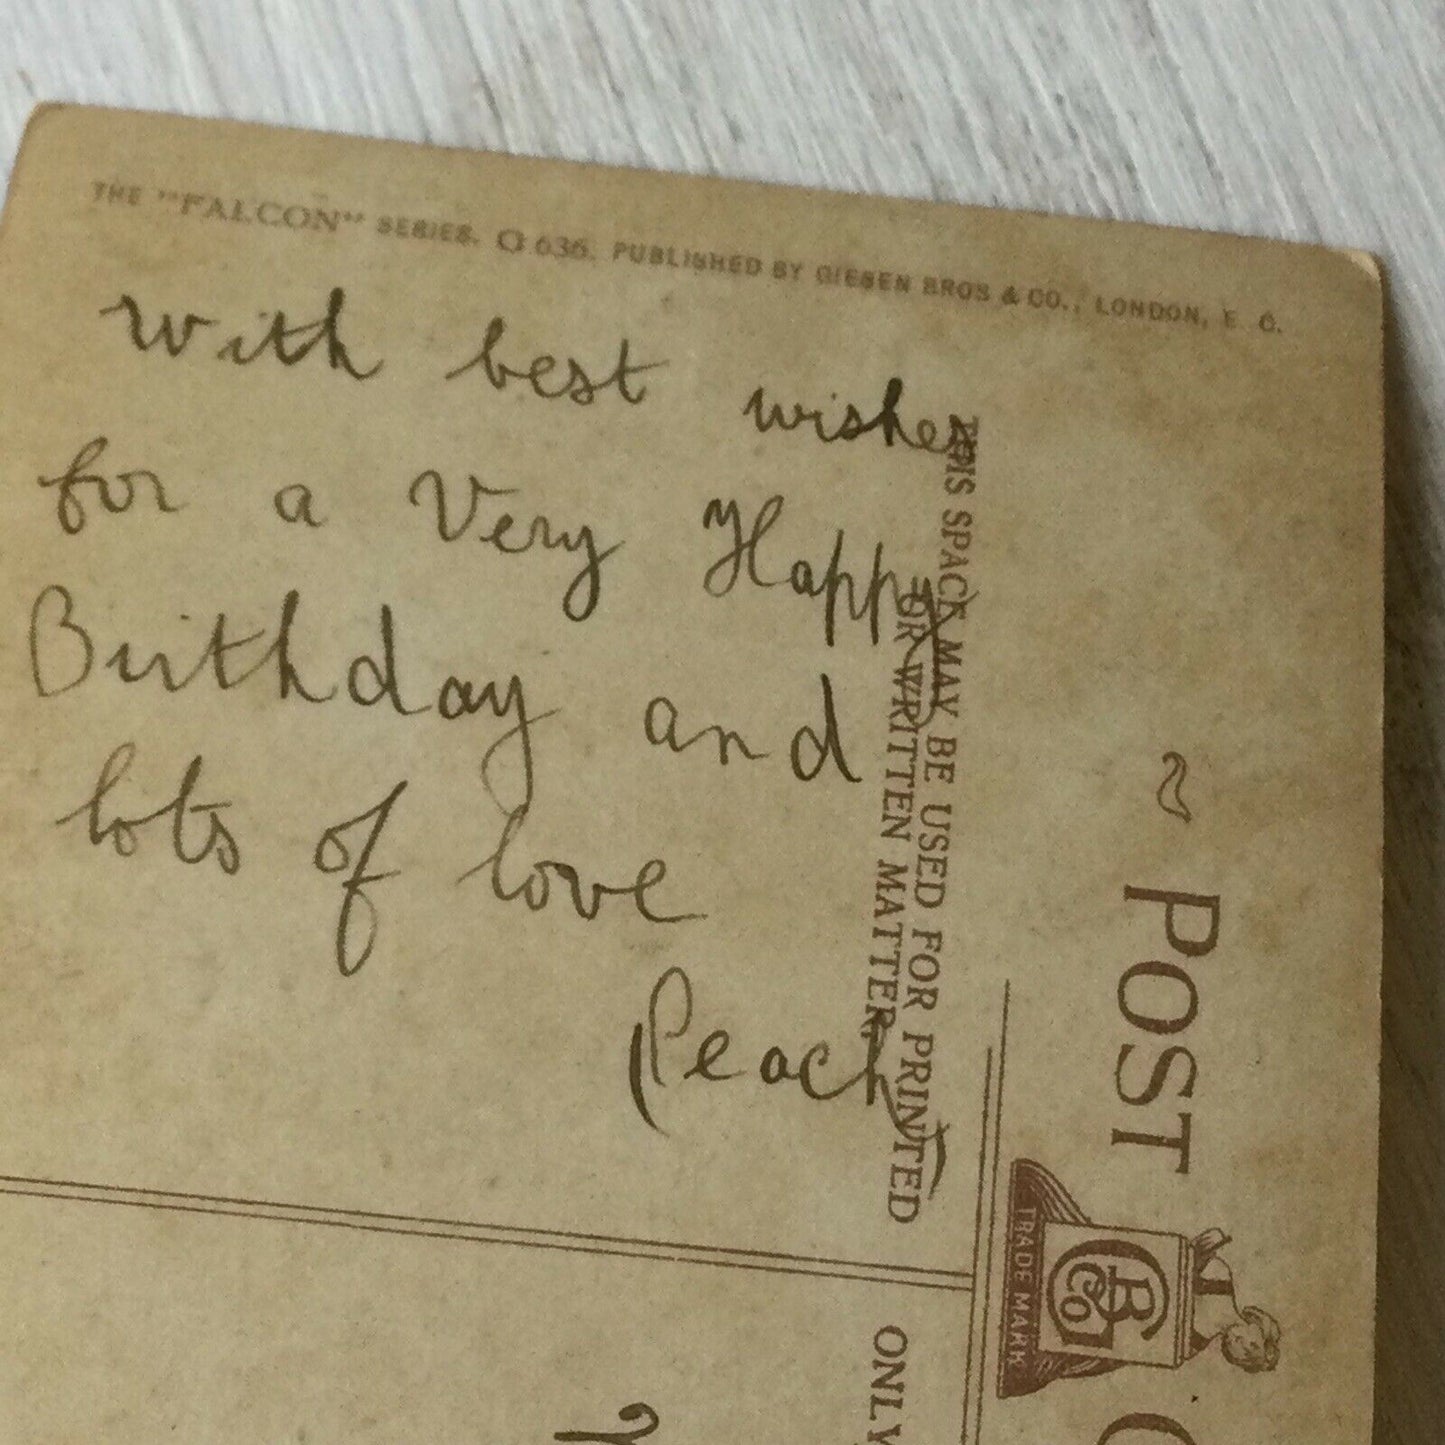 THE "FALCON" SERIES. O 636. PUBLISHED BY GIESEN BROS & CO., LONDON, E. C.
With best wishes
for a Very Happy
Birthday and
lots of love
Peach
THIS SPACE MAY BE USED FOR PRINTED
OR WRITTEN MATTER.
POST
TRADE MARK
GB Co
ONLY